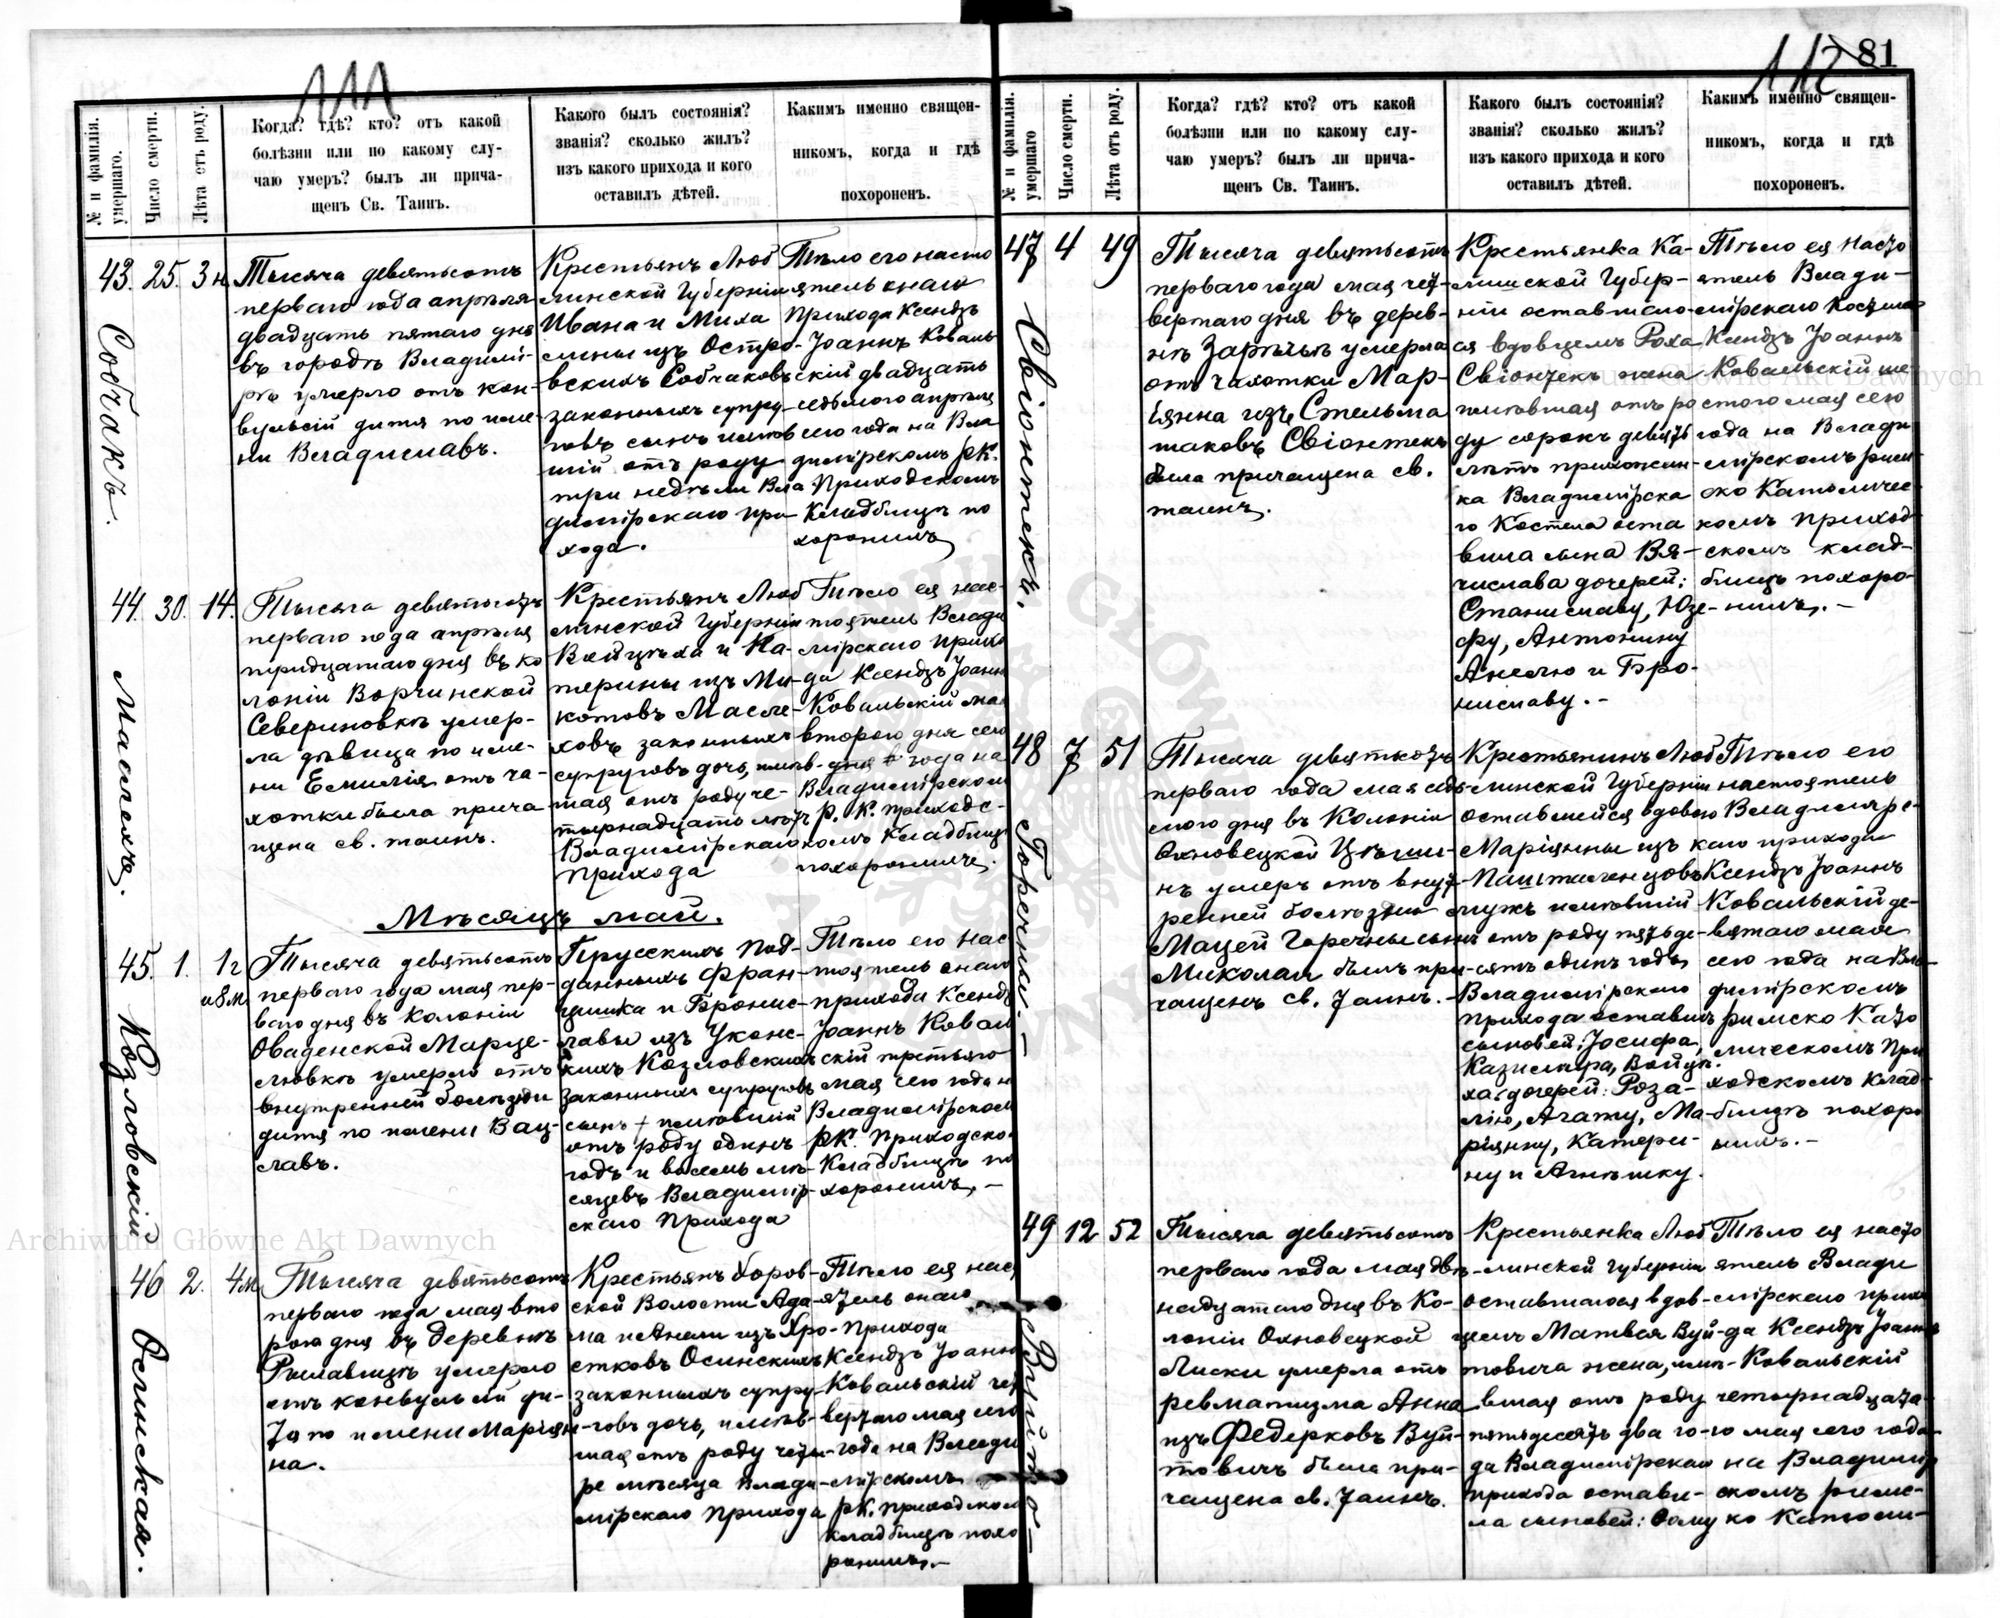 111
№ и фамилія умершаго.
Число смерти.
Лѣта отъ роду.
Когда? гдѣ? кто? отъ какой
болѣзни или по какому слу-
чаю умеръ? былъ ли прича-
щенъ Св. Таинъ.
Какого былъ состоянія?
званія? сколько жилъ?
изъ какого прихода и кого
оставилъ дѣтей.
Какимъ именно священ-
никомъ, когда и гдѣ
похороненъ.
43. 25. 3 н.
Собчакъ.
Тысяча девятьсотъ
перваго года апрѣля
двадцать пятаго дня
въ городѣ Владимі-
рѣ умерло отъ кон-
вульсій дитя по име-
ни Владиславъ.
Крестьянъ Люб
линской Губерніи
Ивана и Миха
лины изъ Остро-
вскихъ Собчаковъ
законныхъ супру-
говъ сынъ имѣв
шій отъ роду
три недѣли Вла
димірскаго при
хода.
Тѣло его насто
ятель онаго
Прихода Ксендзъ
Іоаннъ Коваль
скій двадцать
седьмого апрѣля
сего года на Вла
димірскомъ р.К.
Приходскомъ
Кладбищѣ по
хоронилъ
44. 30. 14.
Маслехъ.
Тысяча девятьсотъ
перваго года апрѣля
тридцатаго дня въ ко
лоніи Ворчинской
Севериновкѣ умер-
ла дѣвица по име-
ни Емилія отъ ча-
хотки была прича
щена св. таинъ.
Крестьянъ Люб
линской Губерніи
Войцѣха и Ка-
терины изъ Ми-
котовъ Масле-
ховъ законныхъ
супруговъ дочь, имѣв-
шая отъ роду че-
тырнадцать лѣтъ
Владимірскаго
прихода
Тѣло ея нас-
тоятель Влади
мірскаго прихо
да Ксендзъ Іоаннъ
Ковальскій мая
второго дня сего
года на
Владимірскомъ
Р. К. приходс-
комъ Кладбищѣ
похоронилъ.
Мѣсяцъ май.
45. 1. 1 г
и 8 м.
Козловскій
Тысяча девятьсотъ
перваго года мая пер-
ваго дня въ колоніи
Оваденской Марце-
ловкѣ умерло отъ
внутренней болѣзни
дитя по имени Вац-
славъ.
Прусскихъ под-
данныхъ Фран-
цишка и Бронис-
лавы изъ Уконс-
кихъ Козловскихъ
законныхъ супруговъ
сынъ имѣвшій
отъ роду одинъ
годъ и восемь мѣ-
сяцевъ Владимір-
скаго Прихода
Тѣло его нас-
тоятель онаго
прихода Ксендзъ
Іоаннъ Коваль
скій третьяго
мая сего года на
Владимірскомъ
рК. Приходско
Кладбищѣ по
хоронилъ. —
46 2. 4 м
Осинская.
Тысяча девятьсотъ
перваго года мая вто
рого дня въ деревнѣ
умерло
отъ конвульсій ди-
тя по имени Маріян-
на.
Крестьянъ Хоров-
ской Волости Ада-
ма и Анели изъ Хро-
стковъ Осинскихъ
законныхъ супру-
говъ дочь, имѣв-
шая отъ роду четы-
ре мѣсяца Влади-
мірскаго Прихода
Тѣло ея нас
тятель онаго
Прихода
Ксендзъ Іоаннъ
Ковальскій чет
вертаго мая сего
года на Влади
мірскомъ
рК. приходском
кладбищѣ похо
ронилъ. —
112 81
№ и фамилія умершаго
Число смерти.
Лѣта отъ роду.
Когда? гдѣ? кто? отъ какой
болѣзни или по какому слу-
чаю умеръ? былъ ли прича-
щенъ Св. Таинъ.
Какого былъ состоянія?
званія? сколько жилъ?
изъ какого прихода и кого
оставилъ дѣтей.
Какимъ именно священ-
никомъ, когда и гдѣ
похороненъ.
47 4 49
Свіонтекъ.
Тысяча девятьсотъ
перваго года мая чет-
вертаго дня въ дерев-
нѣ Зарѣчьѣ умерла
отъ чахотки Мар-
іянна изъ Стельма
шаковъ Свіонтекъ
была причащена св.
таинъ.
Крестьянка Ка-
лишской Губер-
ніи оставшаго-
ся вдовцемъ Роха
Свіонтекъ жена
имѣвшая отъ ро
ду сорокъ девять
лѣтъ прихожан-
ка Владимірска
го Костела оста
вила сына Вя-
числава дочерей:
Станиславу, Юзе-
фу, Антонину
Анелю и Бро-
ниславу. —
Тѣло ея насто
ятель Влади-
мірскаго Костела
Ксендзъ Іоаннъ
Ковальскій ше
стого мая сего
года на Влади
мірскомъ рим-
ско Католичес-
комъ приход-
скомъ клад-
бищѣ похоро-
нилъ. —
48 7 51
Горечный. —
Тысяча девятьсотъ
перваго года мая седь-
мого дня въ Колоніи
Охновецкой
нъ умеръ отъ внут-
ренней болѣзни
Мацей Горечный сынъ
Миколая былъ при-
чащенъ св. Таинъ. —
Крестьянинъ Люб
линской Губерніи
оставшейся вдовою
Маріянны изъ
мужъ имѣвшій
отъ роду пятьде-
сятъ одинъ годъ,
Владимірскаго
прихода оставилъ
сыновей: Іосифа,
Казиміра, Войцѣ-
ха: дочерей: Роза-
лію, Агату, Ма-
ріянну, Катери-
ну и Агнѣшку.
Тѣло его
настоятель
Владимірс-
каго прихода
Ксендзъ Іоаннъ
Ковальскій де-
вятаго мая
сего года на Вла-
димірскомъ
римско Като
лическомъ При
ходскомъ клад-
бищѣ похоро
нилъ. —
49 12 52
Вуйто-
Тысяча девятьсотъ
перваго года мая двѣ-
надцатаго дня въ Ко-
лоніи Охновецкой
Лиски умерла отъ
ревматизма Анна
изъ Федерковъ Вуй-
товичъ была при-
чащена св. Таинъ.
Крестьянка Люб
линской Губерніи
оставшагося вдов-
цемъ Матвея Вуй-
товича жена, имѣ-
вшая отъ роду
пятьдесятъ два го-
да Владимірскаго
прихода остави-
ла сыновей: Фому
Тѣло ея насто
ятель Влади
мірскаго прихо
да Ксендзъ Іоаннъ
Ковальскій
четырнадцата-
го мая сего года
на Владимір
скомъ римс-
ко Католи-
Archiwum Główne Akt Dawnych
Archiwum Główne Akt Dawnych